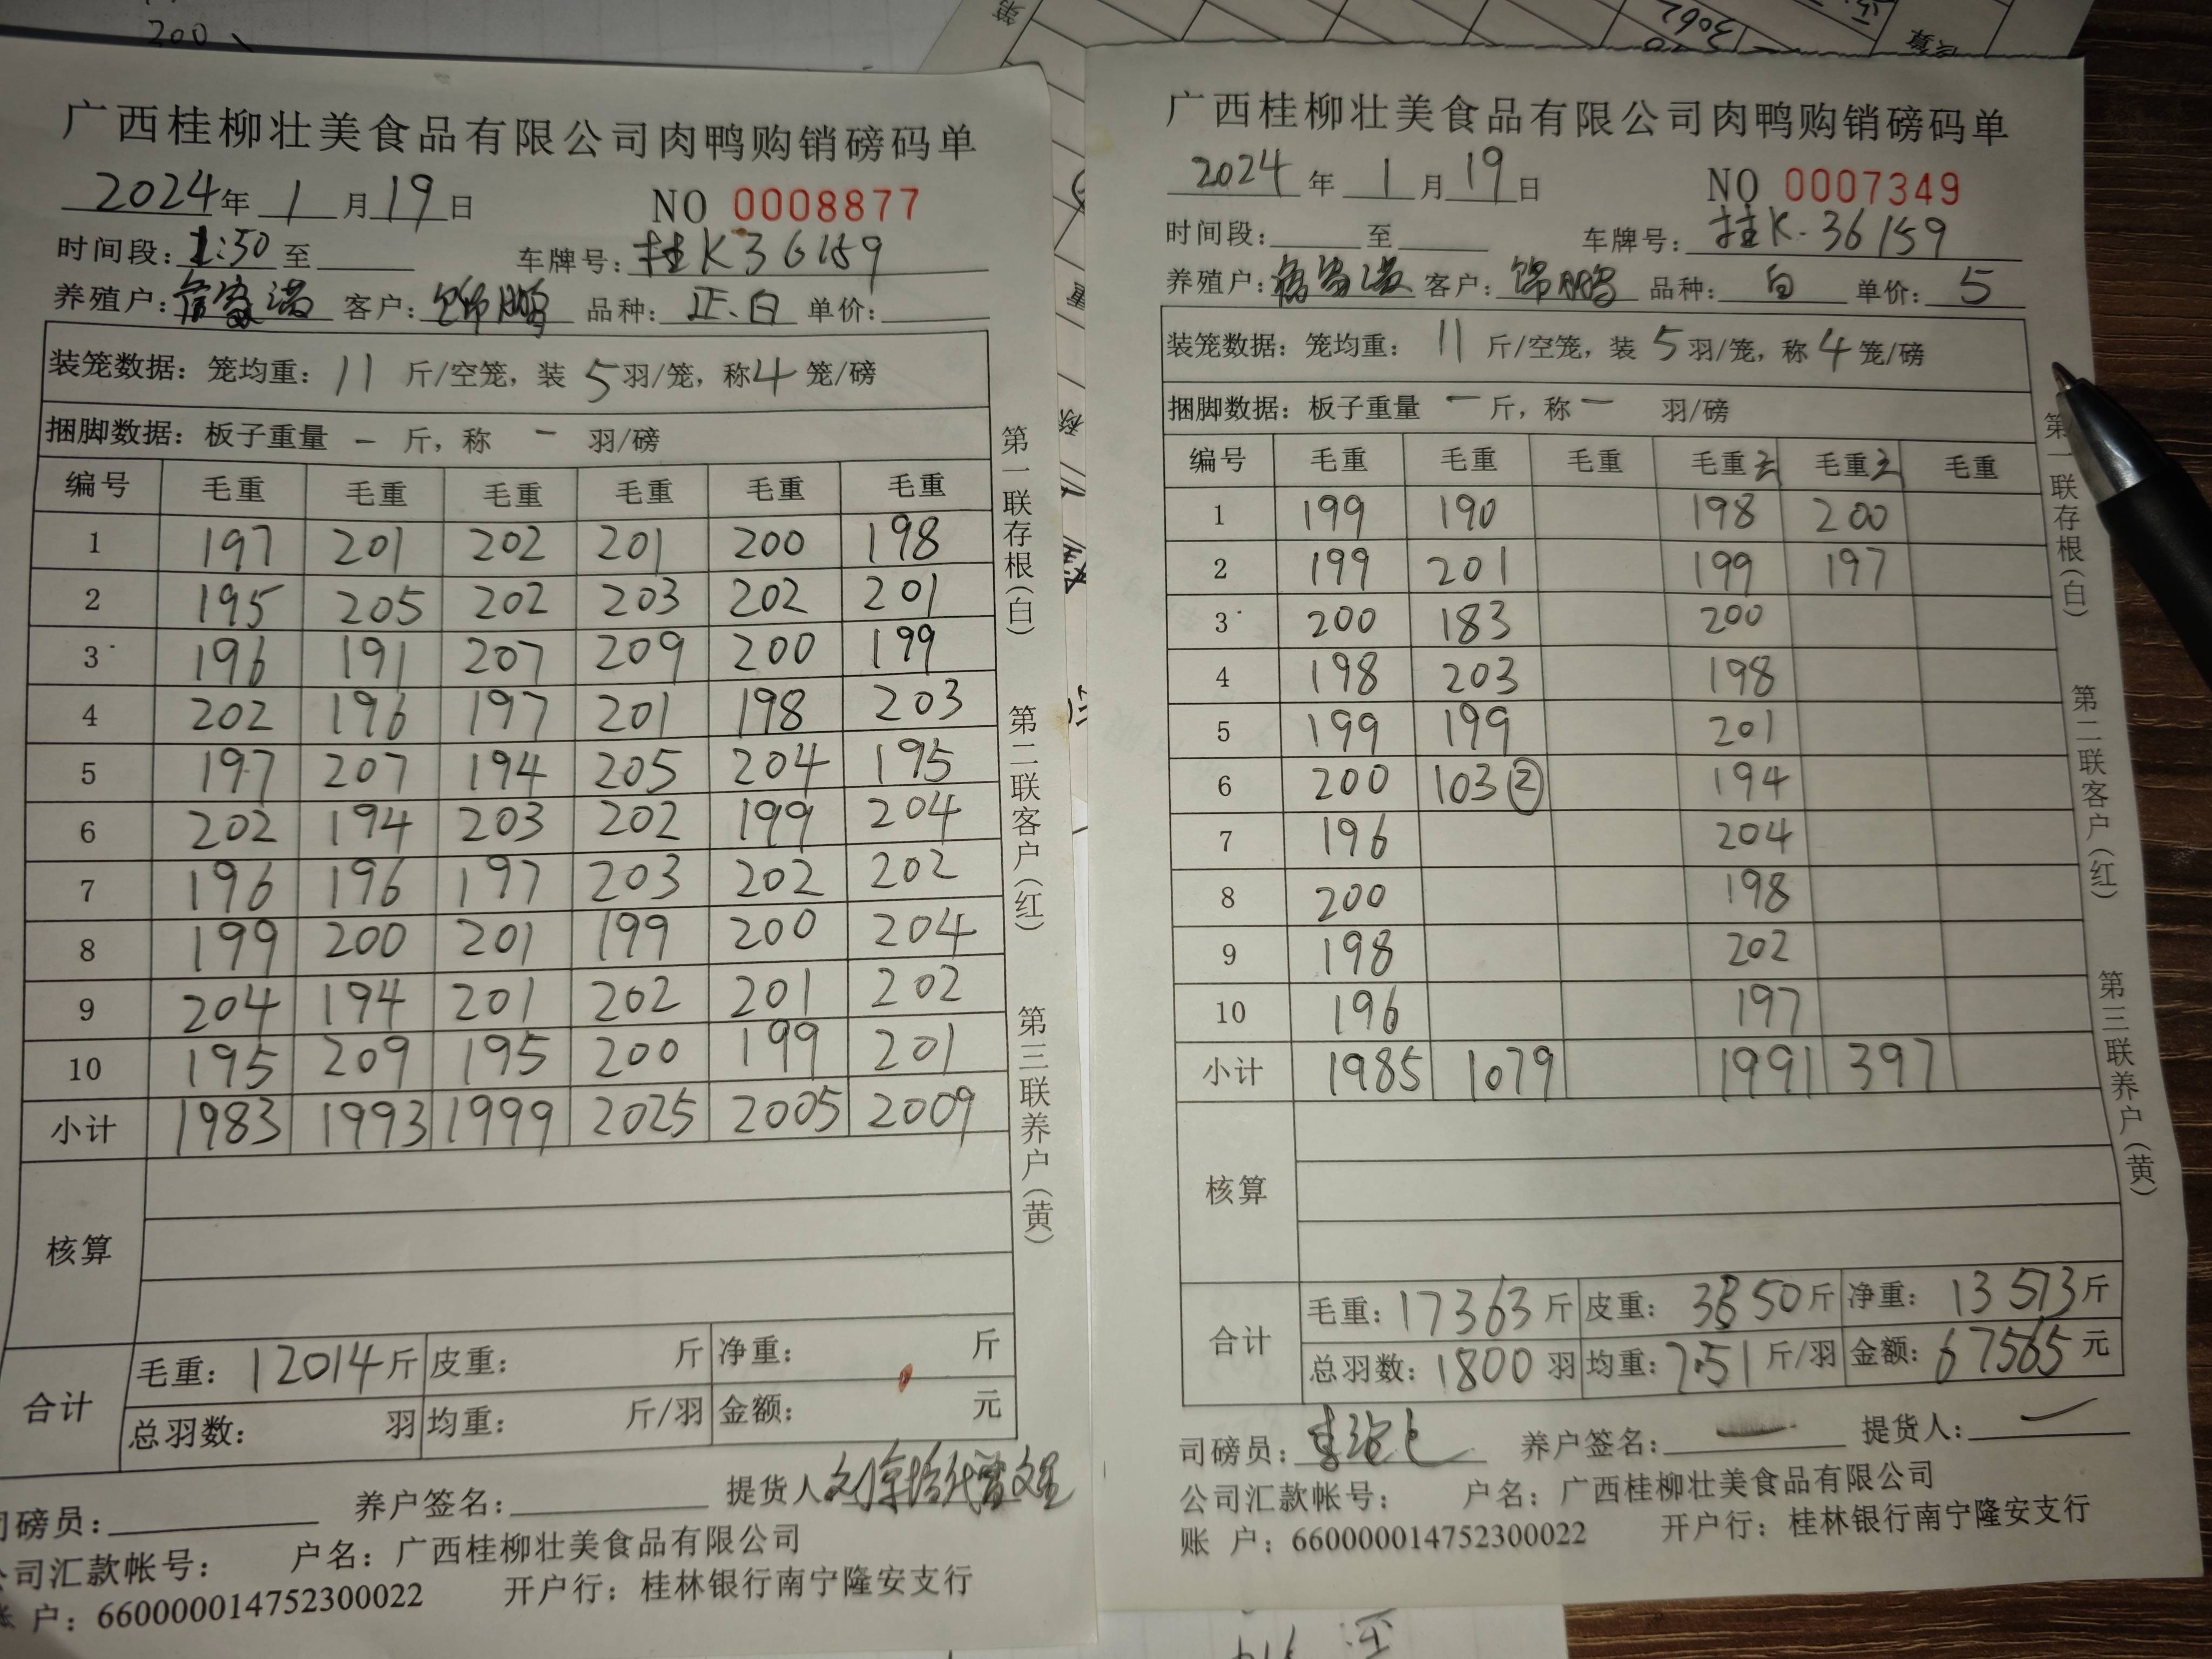 200
3062
广西桂柳壮美食品有限公司肉鸭购销磅码单
2024年 1 月 19 日 NO 0008877
时间段: 1:50 至 车牌号: 桂K36159
养殖户: 客户: 锦鹏 品种: 正.白 单价:
装笼数据: 笼均重: 11 斤/空笼, 装 5 羽/笼, 称 4 笼/磅
捆脚数据: 板子重量 一 斤, 称 一 羽/磅
编号 毛重 毛重 毛重 毛重 毛重 毛重
1 197 201 202 201 200 198
2 195 205 202 203 202 201
3 196 191 207 209 200 199
4 202 196 197 201 198 203
5 197 207 194 205 204 195
6 202 194 203 202 199 204
7 196 196 197 203 202 202
8 199 200 201 199 200 204
9 204 194 201 202 201 202
10 195 209 195 200 199 201
小计 1983 1993 1999 2025 2005 2009
核算
合计
毛重: 12014斤 皮重: 斤 净重: 斤
总羽数: 羽 均重: 斤/羽 金额: 元
司磅员: 养户签名: 提货人
公司汇款帐号: 户名: 广西桂柳壮美食品有限公司
账 户: 660000014752300022 开户行: 桂林银行南宁隆安支行
第一联存根(白) 第二联客户(红) 第三联养户(黄)
广西桂柳壮美食品有限公司肉鸭购销磅码单
2024 年 1 月 19 日 NO 0007349
时间段: 至 车牌号: 桂K·36159
养殖户: 客户: 锦鹏 品种: 白 单价: 5
装笼数据: 笼均重: 11 斤/空笼, 装 5 羽/笼, 称 4 笼/磅
捆脚数据: 板子重量 一 斤, 称 一 羽/磅
编号 毛重 毛重 毛重 毛重 毛重 毛重
1 199 190 198 200
2 199 201 199 197
3 200 183 200
4 198 203 198
5 199 199 201
6 200 103② 194
7 196 204
8 200 198
9 198 202
10 196 197
小计 1985 1079 1991 397
核算
合计
毛重: 17363斤 皮重: 3850斤 净重: 13513斤
总羽数: 1800 羽 均重: 7.51 斤/羽 金额: 67565 元
司磅员: 养户签名: 提货人:
公司汇款帐号: 户名: 广西桂柳壮美食品有限公司
账 户: 660000014752300022 开户行: 桂林银行南宁隆安支行
第一联存根(白) 第二联客户(红) 第三联养户(黄)